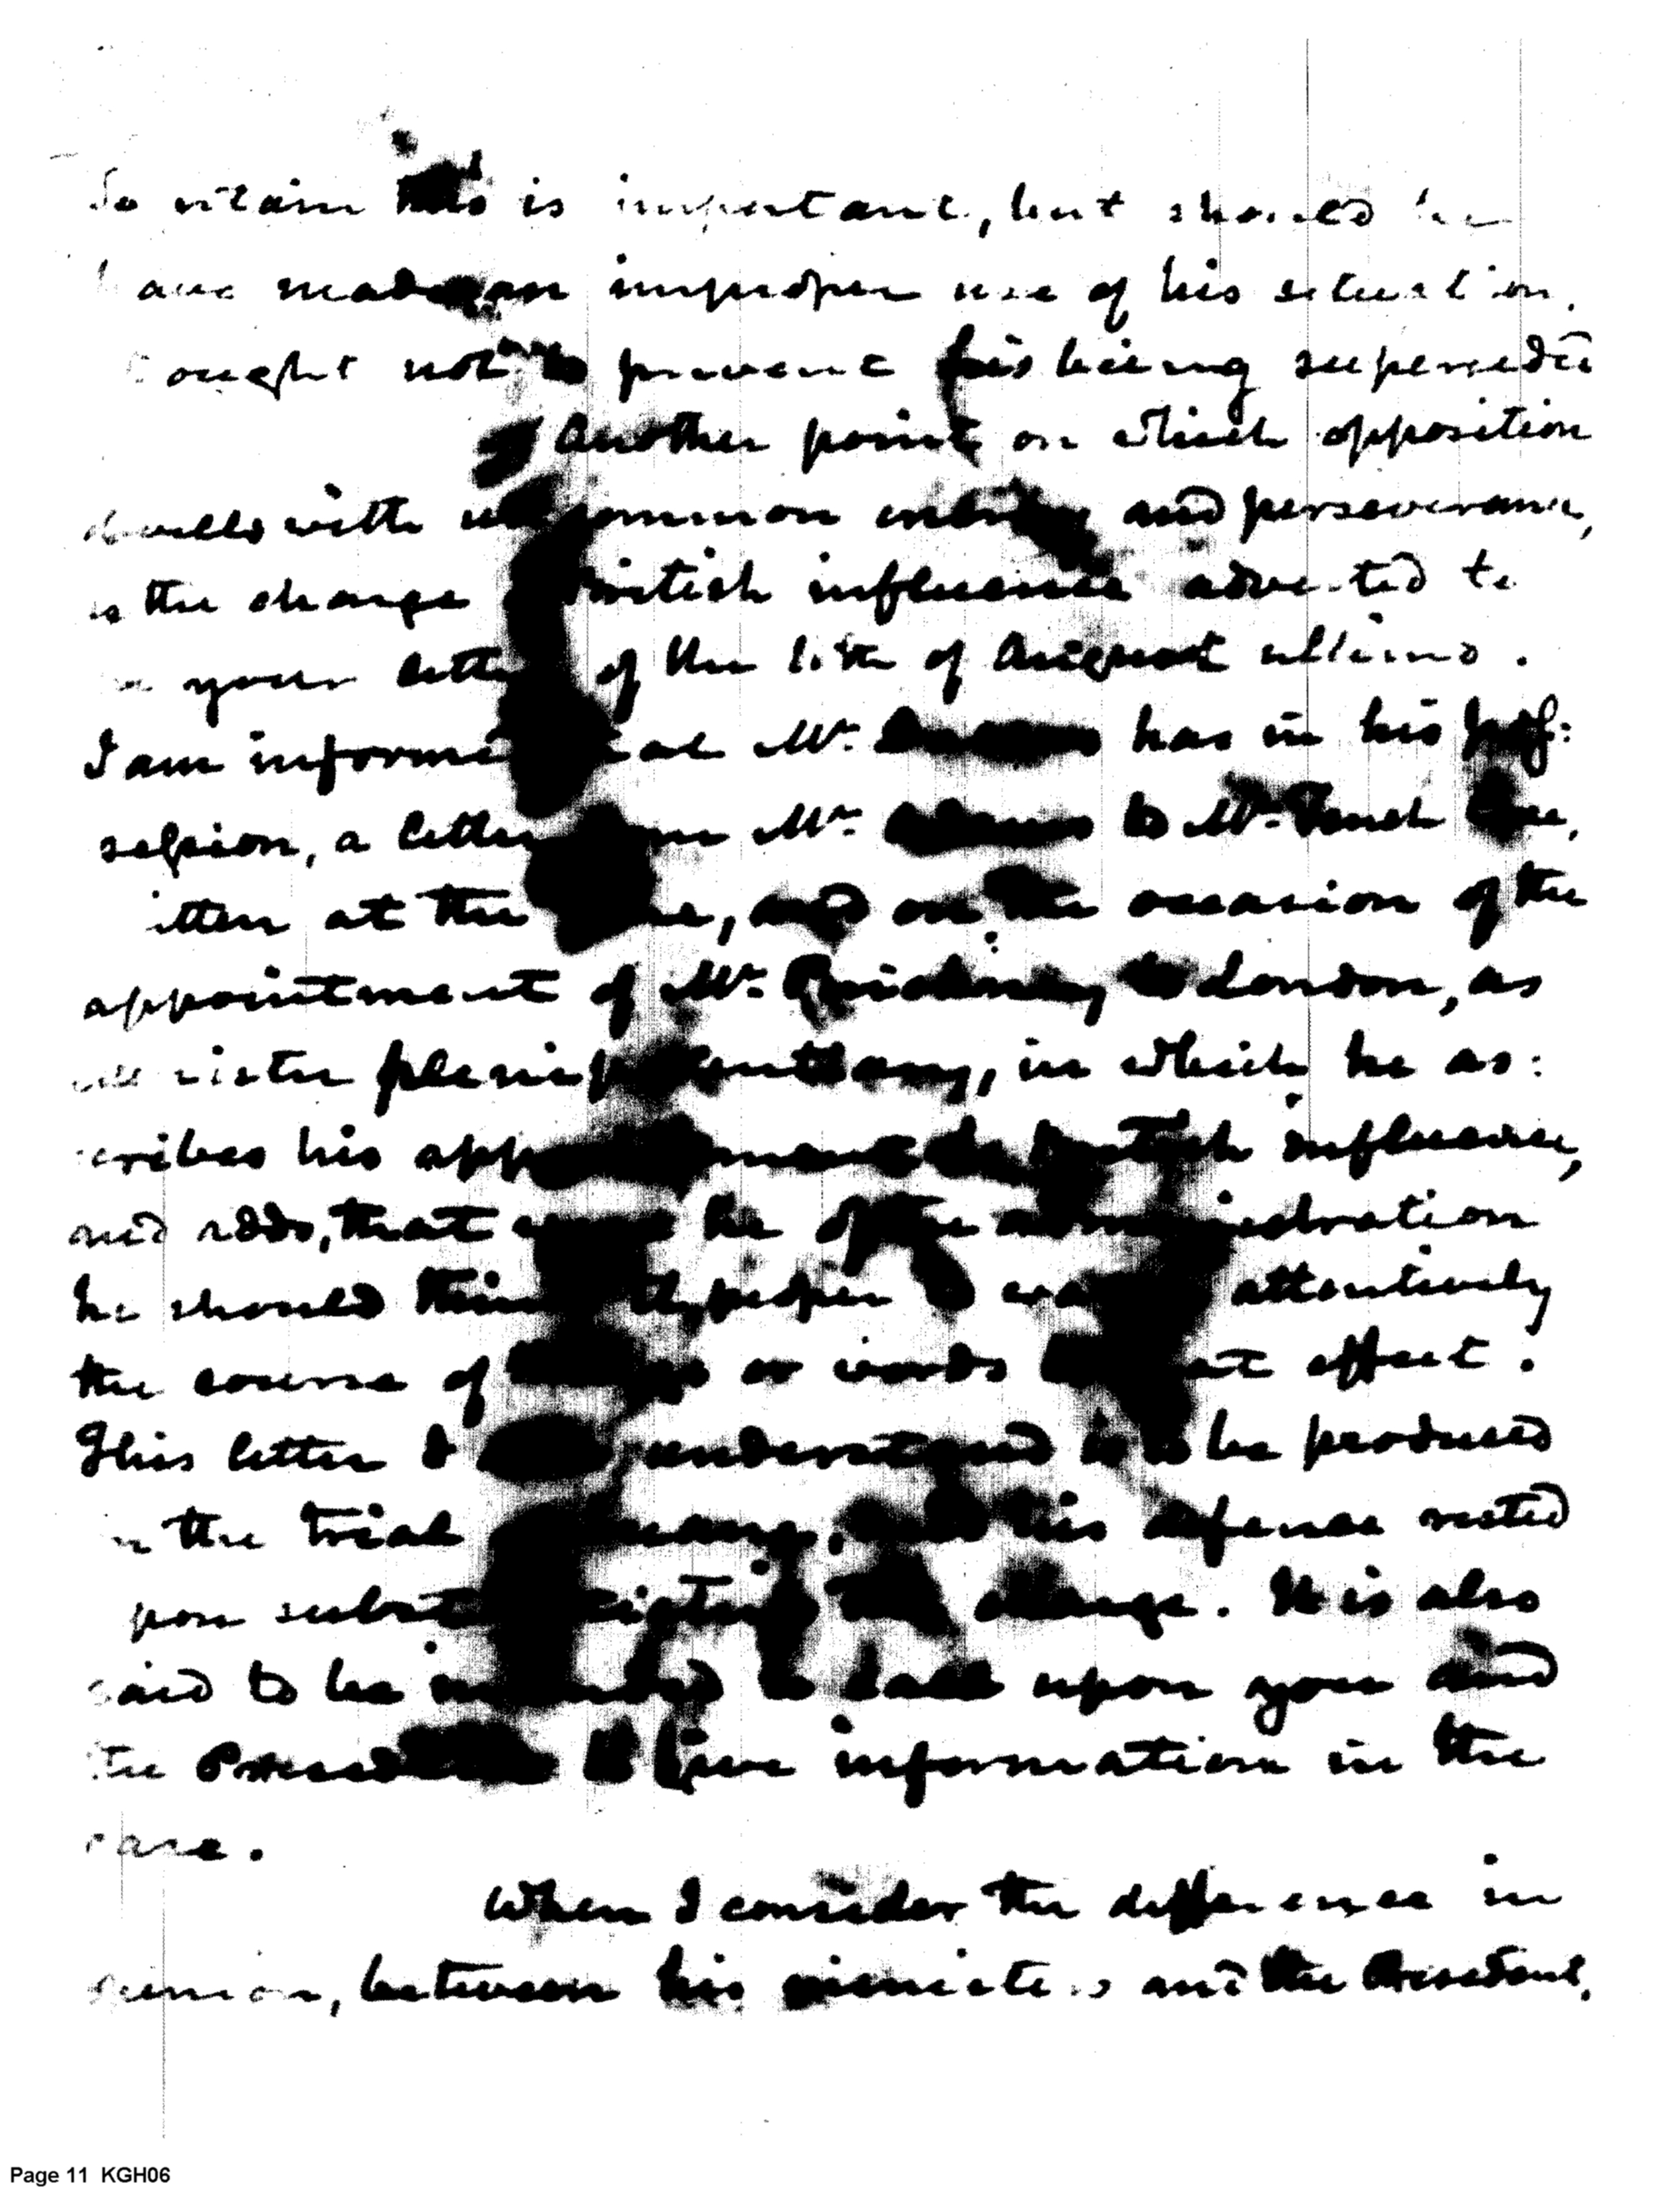 So retain this is important, but should he
have made an improper use of his situation,
ought not to prevent his being superceded
Another point on which opposition
dwells with uncommon and perseverance,
is the charge British influence adverted to
in your letter of the of August ultimo.
I am informed that Mr. has in his pos:
session, a letter from Mr. Adams to Mr. Tench Coxe,
written at the time, and on the occasion of the
appointment of Mr. Pinckney to London, as
minister plenipotentiary, in which he as:
cribes his appointment to British influence,
and adds, that were he of the administration
he should think it proper to watch attentively
the course of or words to that effect.
This letter I understand is to be produced
on the trial of Duane, and his defence rested
upon substantiating the charge. It is also
said to be intended to call upon you and
the President to give information in the
case.
When I consider the difference in
opinion, between his ministers and the President,
Page 11 KGH06